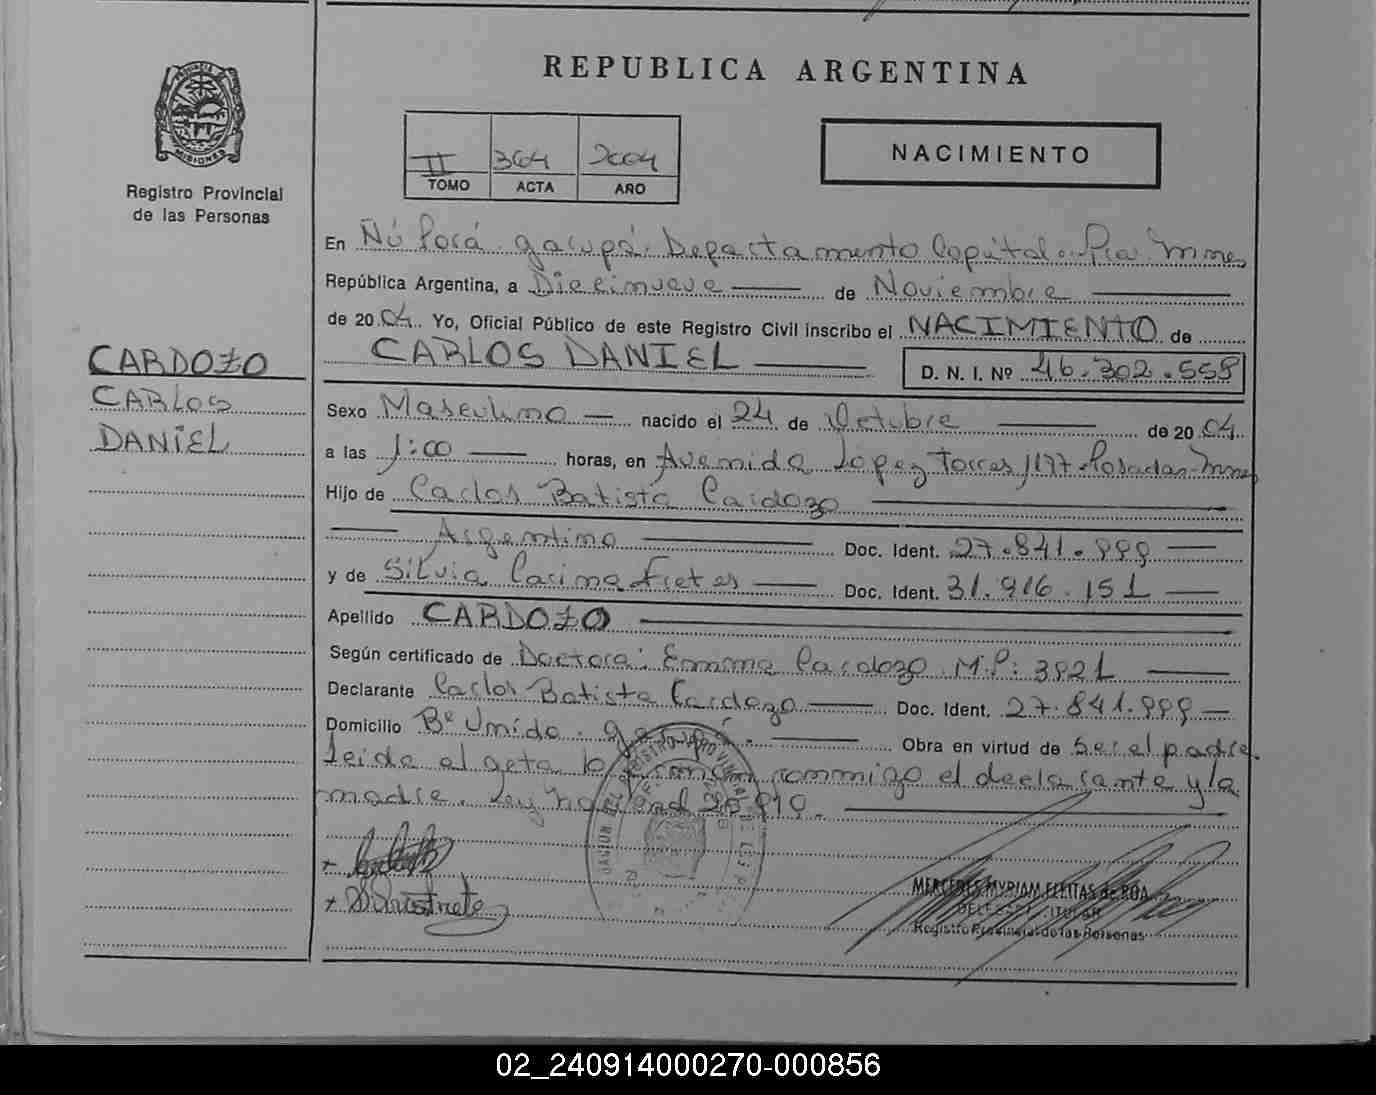 REPUBLICA ARGENTINA
PROVINCIA DE MISIONES
Registro Provincial
de las Personas
II 364 2004
TOMO ACTA AÑO
NACIMIENTO
En Ñú Porá. Garupá. Departamento Capital. Pcia. Mnes
República Argentina, a Diecinueve de Noviembre
de 2004. Yo, Oficial Público de este Registro Civil inscribo el NACIMIENTO de
CARLOS DANIEL D. N. I. Nº 46.302.558
CARDOZO
CARLOS
DANIEL
Sexo Masculino nacido el 24 de Octubre de 2004.
a las 1:00 horas, en Avenida Lopez Torres 1177-Posadas-Mnes
Hijo de Carlos Batista Cardozo
Argentino Doc. Ident. 27.841.999
y de Silvia Carina Fretes Doc. Ident. 31.916.151
Apellido CARDOZO
Según certificado de Doctora: Emma Cardozo M.P: 3921
Declarante Carlos Batista Cardozo Doc. Ident. 27.841.999
Domicilio Bº Unido. Garupá. Obra en virtud de Ser el padre
leida el acta la firman conmigo el declarante y la
madre. Ley Nacional
MERCEDES MYRIAM FLEITAS de ROA
DELEGADA TITULAR
Registro Provincial de las Personas
02_240914000270-000856